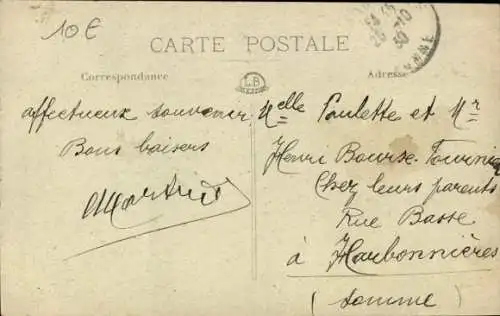 10 €
CARTE POSTALE
Correspondance
LB
Adresse
affectueux souvenir
Bons baisers
Melle Paulette et Mr
Henri Bourse-Fournie
Chez leurs parents
Rue Basse
à Harbonnières
(Somme)